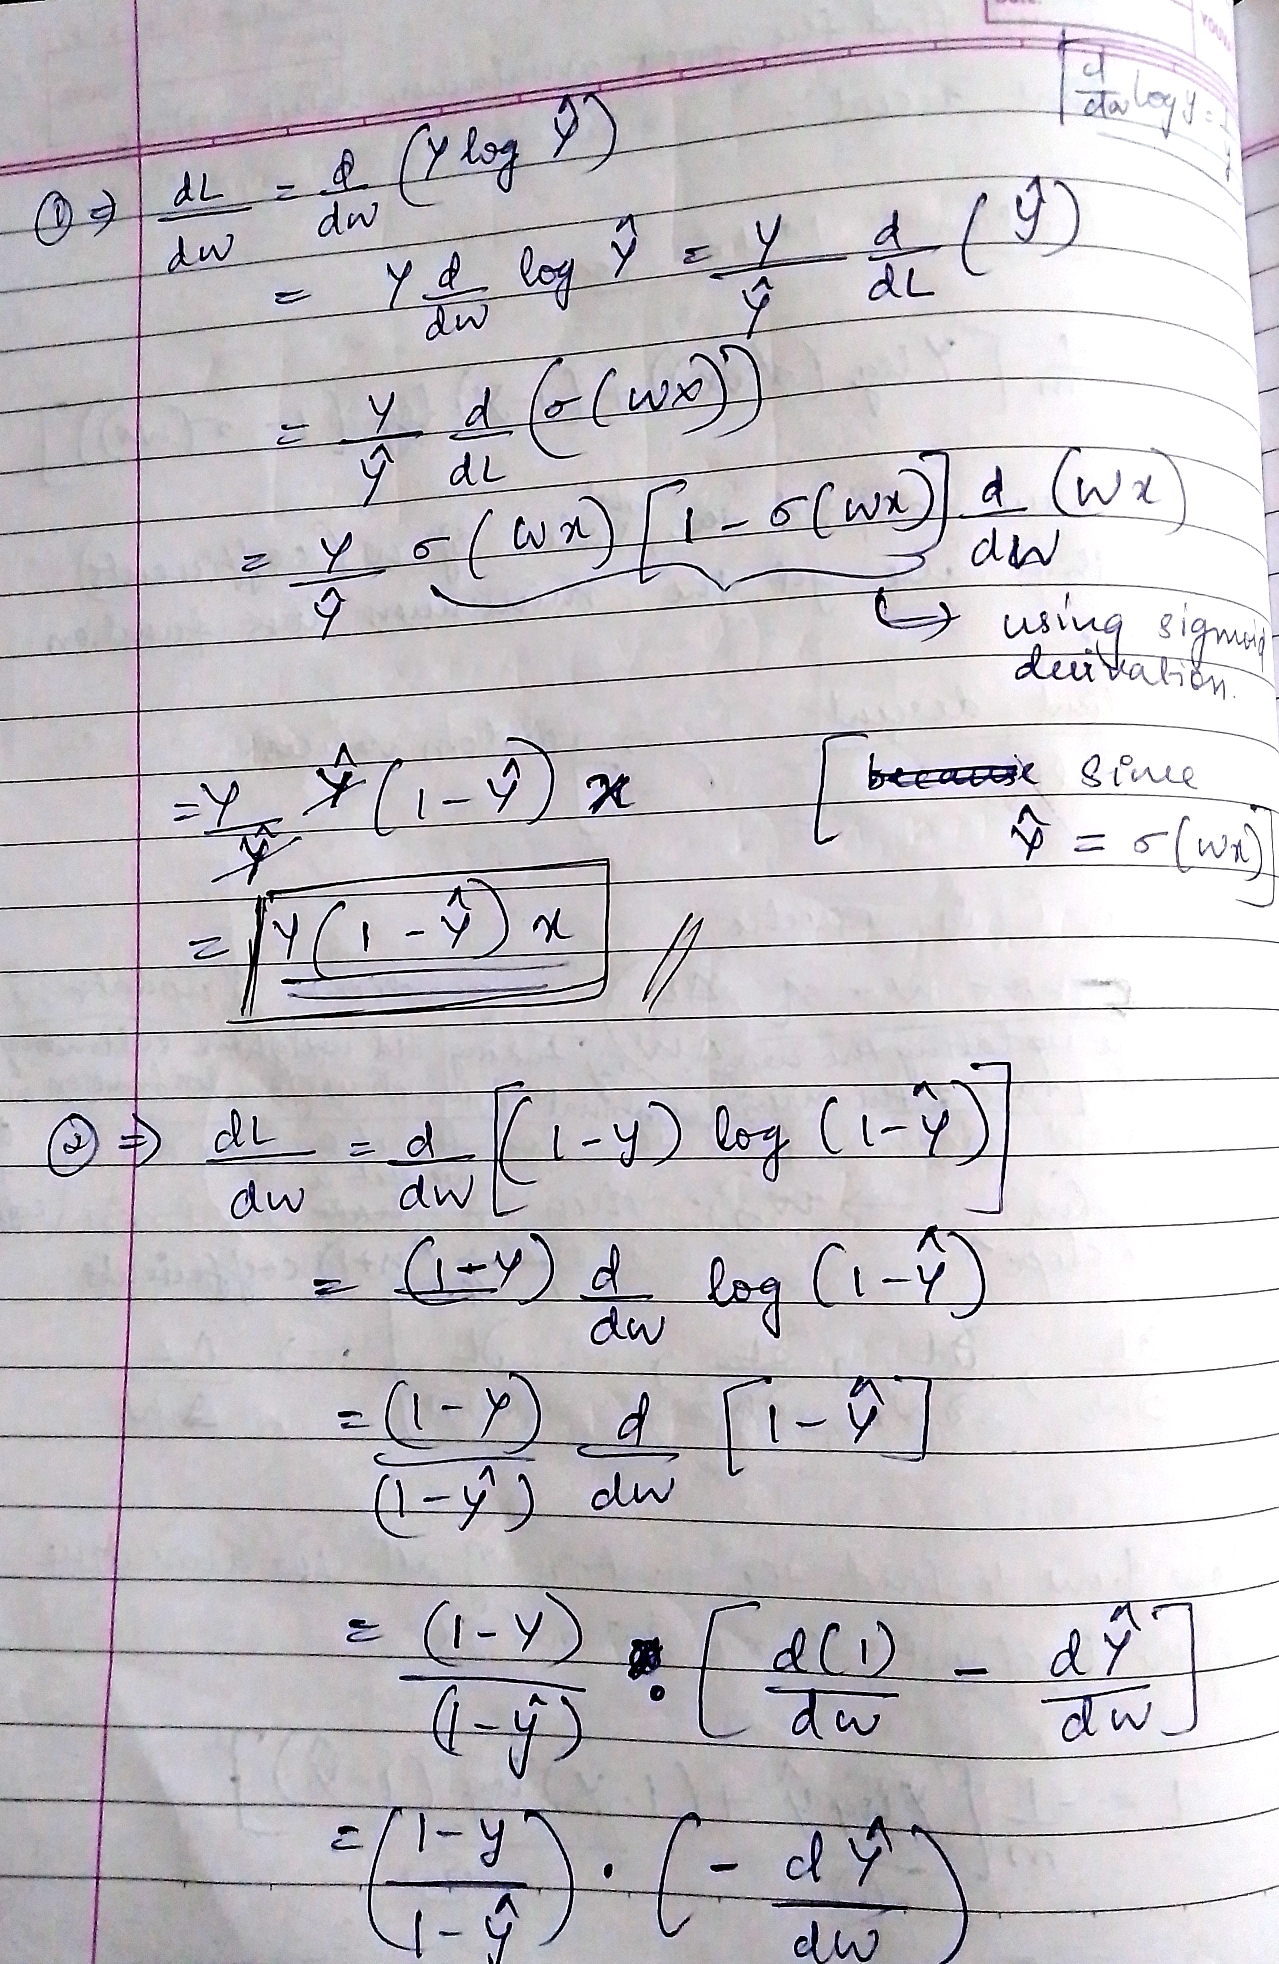 d/dw log y = 1/y
① ⇒ dL/dw = d/dw (Y log Ŷ)
= Y d/dw log Ŷ = Y/Ŷ d/dL (Ŷ)
= Y/Ŷ d/dL (σ(wx))
= Y/Ŷ σ(wx) [1 - σ(wx)] d/dw (wx)
↳ using sigmoid
derivation.
= Y/Ŷ Ŷ (1 - Ŷ) x [because since
Ŷ = σ(wx)]
= Y(1 - Ŷ) x //
② ⇒ dL/dw = d/dw [(1-y) log (1-Ŷ)]
= (1-Y) d/dw log (1-Ŷ)
= (1-Y)/(1-Ŷ) d/dw [1-Ŷ]
= (1-Y)/(1-Ŷ) . [d(1)/dw - dŶ/dw]
= (1-y/1-Ŷ) . (- dŶ/dw)